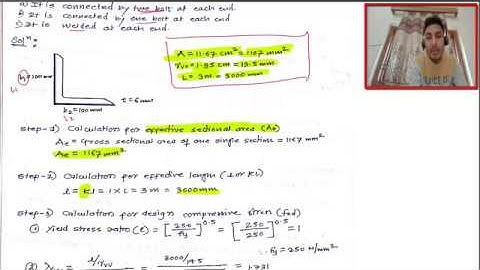 a) It is connected by two bolt at each end.
b) It is connected by one bolt at each end
c) It is welded at each end.
Solⁿ:
A = 11.67 cm² = 1167 mm²
rvv = 1.95 cm = 19.5 mm
L = 3m = 3000 mm
b₁=100mm
t=6mm
b₂=100mm
Step-1) Calculation for effective sectional area (Ae)
Ae = Gross sectional area of one single section = 1167 mm²
Ae = 1167 mm²
Step-2) Calculation for effective length (l or KL)
l = Kl = 1 x L = 3m = 3000mm
Step-3) Calculation for design compressive stress (fcd)
(1) Yield stress ratio (ε) = [250/fy]^0.5 = [250/250]^0.5 = 1
∴ fy = 250 N/mm²
(2) λvv = l/rvv = 3000/19.5 = 1.731